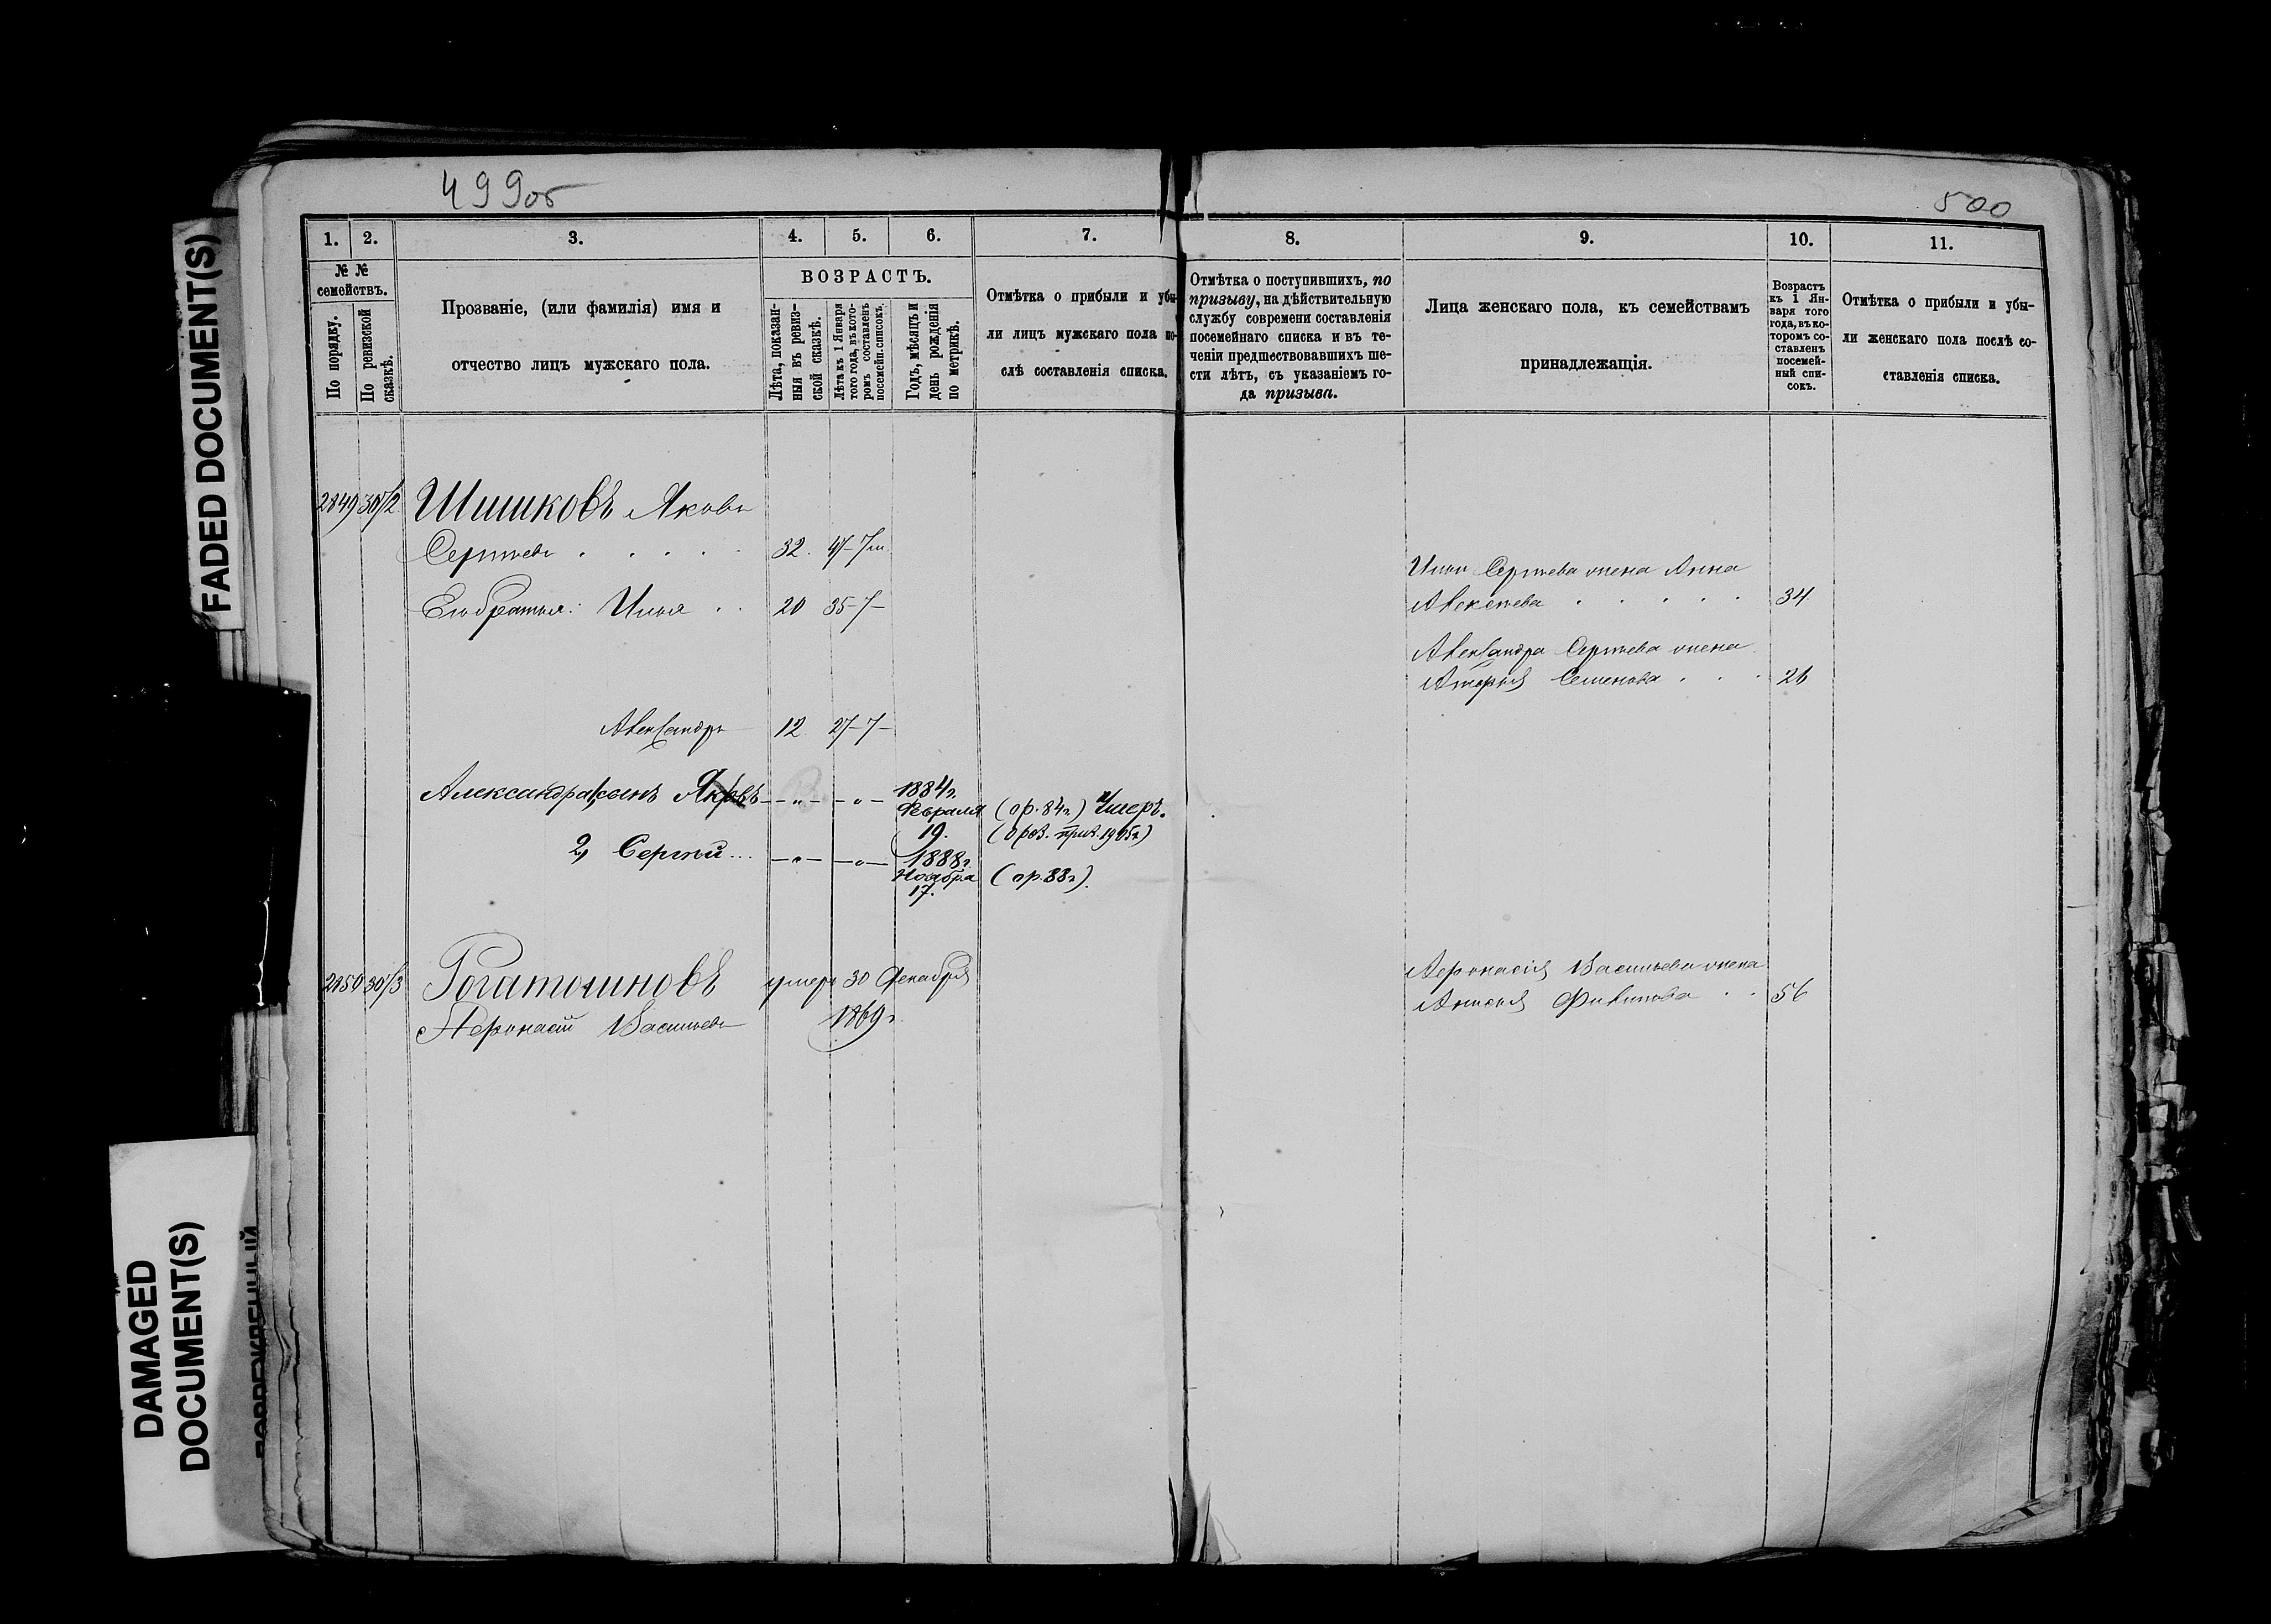 499об
500
FADED DOCUMENT(S)
DAMAGED
DOCUMENT(S)
1.
2.
3.
4.
5.
6.
7.
8.
9.
10.
11.
№ №
семействъ.
По порядку.
По ревизской
сказкѣ.
Прозваніе, (или фамилія) имя и
отчество лицъ мужскаго пола.
ВОЗРАСТЪ.
Лѣта, показан-
ныя въ ревиз-
ской сказкѣ.
Лѣта къ 1 Января
того года, въ кото-
ромъ составленъ
посемейн. списокъ.
Годъ, мѣсяцъ и
день рожденія
по метрикѣ.
Отмѣтка о прибыли и убы-
ли лицъ мужскаго пола по-
слѣ составленія списка.
Отмѣтка о поступившихъ, по
призыву, на дѣйствительную
службу современи составленія
посемейнаго списка и въ те-
ченіи предшествовавшихъ ше-
сти лѣтъ, съ указаніемъ го-
да призыва.
Лица женскаго пола, къ семействамъ
принадлежащія.
Возрастъ
къ 1 Ян-
варя того
года, въ ко-
торомъ со-
ставленъ
посемей-
ный спи-
сокъ.
Отмѣтка о прибыли и убы-
ли женскаго пола послѣ со-
ставленія списка.
2849 Шишковъ Яковъ
Сергѣевъ 32. 47-7м
Его братья: Илья 20 35-7-
Ильи Сергѣева жена Анна
Алексѣева 34
Александра Сергѣева жена
Семенова 26
Александръ 12 27-7-
Александра 1, сынъ Яковъ -"- -"- 1884г. Февраля 19. (ор. 84г.) Умеръ.
2, Сергѣй... -"- -"- 1888г. Ноября 17. (ор. 88г).
2850 умеръ 30 Декабря
Афонасій Васильевъ 1869г.
Афонасія Васильева жена
Филипова 56